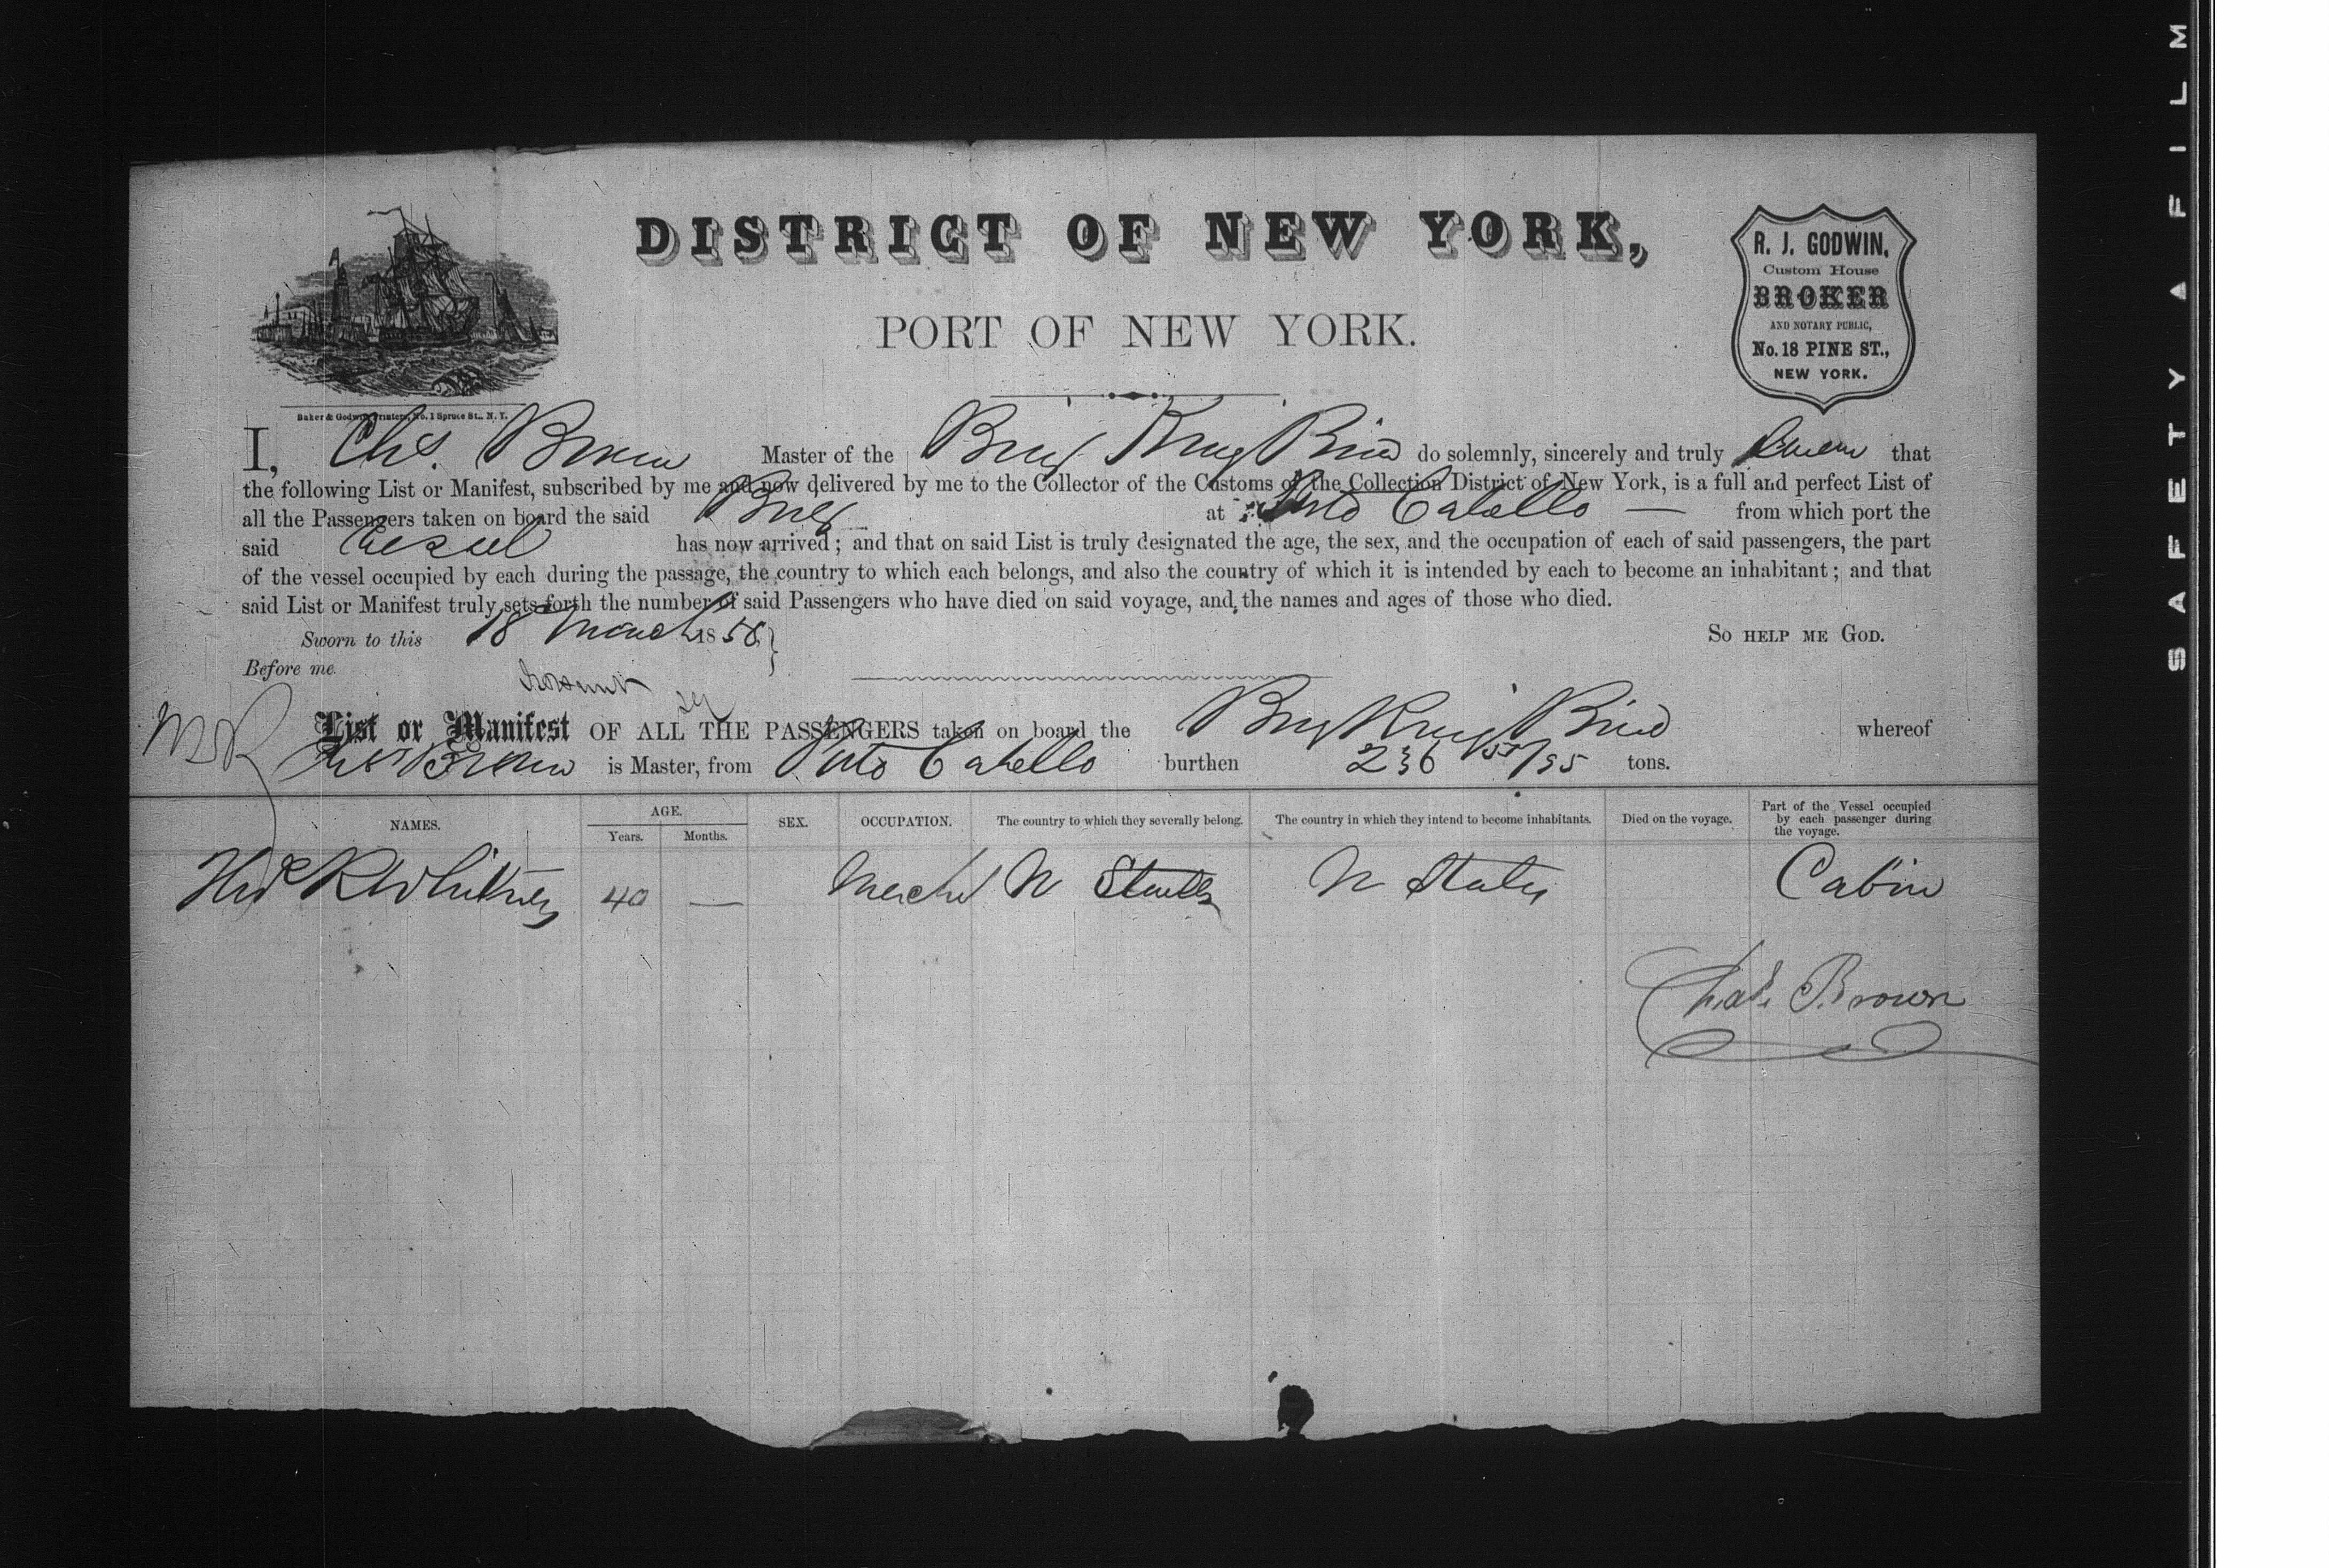 DISTRICT OF NEW YORK,
PORT OF NEW YORK.
R. J. GODWIN,
Custom House
BROKER
AND NOTARY PUBLIC,
No. 18 PINE ST.,
NEW YORK.
Baker & Godwin, Printers, No. 1 Spruce St., N. Y.
I, Chs. Brown Master of the Brig King Bird do solemnly, sincerely and truly Swear that
the following List or Manifest, subscribed by me and now delivered by me to the Collector of the Customs of the Collection District of New York, is a full and perfect List of
all the Passengers taken on board the said Brig at Porto Cabello — from which port the
said Vessel has now arrived; and that on said List is truly designated the age, the sex, and the occupation of each of said passengers, the part
of the vessel occupied by each during the passage, the country to which each belongs, and also the country of which it is intended by each to become an inhabitant; and that
said List or Manifest truly sets forth the number of said Passengers who have died on said voyage, and the names and ages of those who died.
Sworn to this 18 March 1858 } So HELP ME GOD.
Before me
List or Manifest OF ALL THE PASSENGERS taken on board the Brig King Bird whereof
Chs Brown is Master, from Porto Cabello burthen 236 /95 tons.
NAMES. AGE. Years. Months. SEX. OCCUPATION. The country to which they severally belong. The country in which they intend to become inhabitants. Died on the voyage. Part of the Vessel occupied by each passenger during the voyage.
R Whitney 40 — Mercht U States U States Cabin
Chas. Brown
SAFETY ▲ FILM